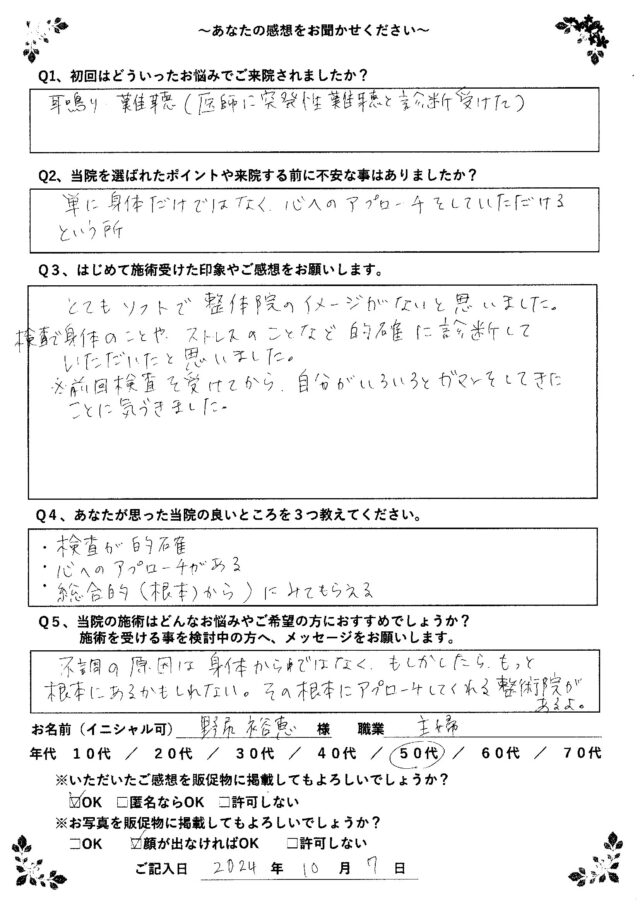 ～あなたの感想をお聞かせください～
Q1、初回はどういったお悩みでご来院されましたか？
耳鳴り 難聴（医師に突発性難聴と診断受けた）
Q2、当院を選ばれたポイントや来院する前に不安な事はありましたか？
単に身体だけではなく、心へのアプローチをしていただける
という所
Q３、はじめて施術受けた印象やご感想をお願いします。
とてもソフトで整体院のイメージがないと思いました。
検査で身体のことや、ストレスのことなど的確に診断して
いただいたと思いました。
※前回検査を受けてから、自分がいろいろとガマンをしてきた
ことに気づきました。
Q４、あなたが思った当院の良いところを３つ教えてください。
・検査が的確
・心へのアプローチがある
・総合的（根本）から）にみてもらえる
Q５、当院の施術はどんなお悩みやご希望の方におすすめでしょうか？
施術を受ける事を検討中の方へ、メッセージをお願いします。
不調の原因は身体からではなく、もしかしたら、もっと
根本にあるかもしれない。その根本にアプローチしてくれる整術院が
あるよ。
お名前（イニシャル可） 野尻 裕恵 様 職業 主婦
年代 １０代 ／ ２０代 ／ ３０代 ／ ４０代 ／ ５０代 ／ ６０代 ／ ７０代
※いただいたご感想を販促物に掲載してもよろしいでしょうか？
☑OK □匿名ならOK □許可しない
※お写真を販促物に掲載してもよろしいでしょうか？
□OK ☑顔が出なければOK □許可しない
ご記入日 2024 年 10 月 7 日